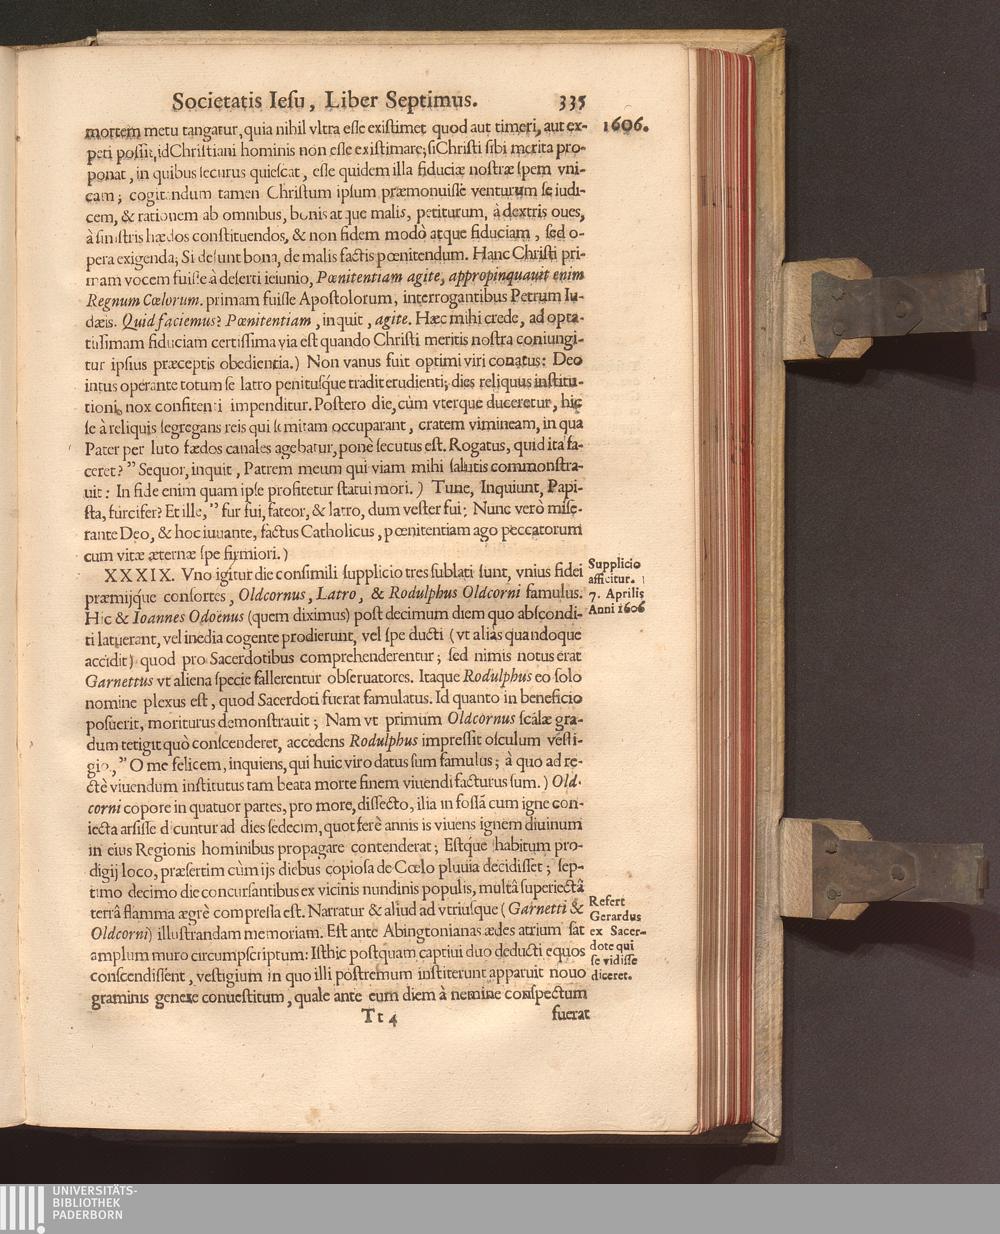 Societatis Iesu, Liber Septimus. 335
mortem metu tangatur, quia nihil vltra esse existimet quod aut timeri, aut ex- 1606.
peti possit, id Christiani hominis non esse existimare; si Christi sibi merita pro-
ponat, in quibus securus quiescat, esse quidem illa fiduciæ nostræ spem vni-
cam; cogitandum tamen Christum ipsum præmonuisse venturum se iudi-
cem, & rationem ab omnibus, bonis atque malis, petiturum, à dextris oues,
à sinistris hædos constituendos, & non fidem modò atque fiduciam, sed o-
pera exigenda; Si desunt bona, de malis factis pœnitendum. Hanc Christi pri-
mam vocem fuisse à deserti ieiunio, Pœnitentiam agite, appropinquauit enim
Regnum Cœlorum. primam fuisse Apostolorum, interrogantibus Petrum Iu-
dæis. Quid faciemus? Pœnitentiam, inquit, agite. Hæc mihi crede, ad opta-
tissimam fiduciam certissima via est quando Christi meritis nostra coniungi-
tur ipsius præceptis obedientia.) Non vanus fuit optimi viri conatus: Deo
intus operante totum se latro penitusq́ue tradit erudienti; dies reliquus institu-
tioni, nox confitenti impenditur. Postero die, cùm vterque duceretur, hic
se à reliquis segregans reis qui semitam occuparant, cratem vimineam, in qua
Pater per luto fædos canales agebatur, ponè secutus est. Rogatus, quid ita fa-
ceret? ” Sequor, inquit, Patrem meum qui viam mihi salutis commonstra-
uit: In fide enim quam ipse profitetur statui mori.) Tune, Inquiunt, Papi-
sta, furcifer? Et ille, ” fur fui, fateor, & latro, dum vester fui; Nunc verò mise-
rante Deo, & hoc iuuante, factus Catholicus, pœnitentiam ago peccatorum
cum vitæ æternæ spe firmiori.)
XXXIX. Vno igitur die consimili supplicio tres sublati sunt, vnius fidei
præmijq́ue consortes, Oldcornus, Latro, & Rodulphus Oldcorni famulus.
Hic & Ioannes Odoënus (quem diximus) post decimum diem quo abscondi-
ti latuerant, vel inedia cogente prodierunt, vel spe ducti (vt aliàs quandoque
accidit) quod pro Sacerdotibus comprehenderentur; sed nimis notus erat
Garnettus vt aliena specie fallerentur obseruatores. Itaque Rodulphus eo solo
nomine plexus est, quod Sacerdoti fuerat famulatus. Id quanto in beneficio
posuerit, moriturus demonstrauit; Nam vt primùm Oldcornus scalæ gra-
dum tetigit quò conscenderet, accedens Rodulphus impressit osculum vesti-
gio, ” O me felicem, inquiens, qui huic viro datus sum famulus; à quo ad re-
ctè viuendum institutus tam beata morte finem viuendi facturus sum.) Old-
corni copore in quatuor partes, pro more, dissecto, ilia in fossã cum igne con-
iecta arsisse dicuntur ad dies sedecim, quot ferè annis is viuens ignem diuinum
in eius Regionis hominibus propagare contenderat; Estq́ue habitum pro-
digij loco, præsertim cùm ijs diebus copiosa de Cœlo pluuia decidisset; sep-
timo decimo die concursantibus ex vicinis nundinis populis, multâ superiectâ
terrâ flamma ægrè compressa est. Narratur & aliud ad vtriusque (Garnetti &
Oldcorni) illustrandam memoriam. Est ante Abingtonianas ædes atrium sat
amplum muro circumpscriptum: Isthic postquam captiui duo deducti equos
conscendissent, vestigium in quo illi postremum institerunt apparuit nouo
graminis genere conuestitum, quale ante eum diem à nemine conspectum
Tt 4 fuerat
Supplicio
afficitur.
7. Aprilis
Anni 1606
Refert
Gerardus
ex Sacer-
dote qui
se vidisse
diceret.
UNIVERSITÄTS-
BIBLIOTHEK
PADERBORN